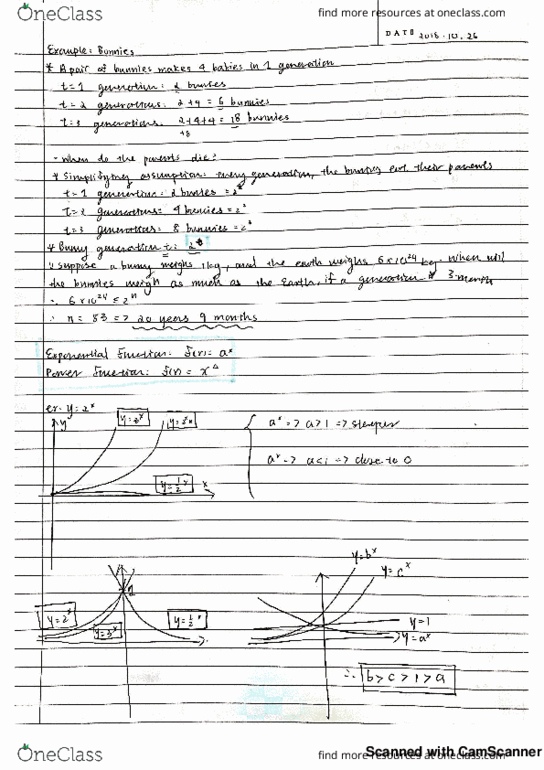 OneClass
find more resources at oneclass.com
DATE 2018.10.26
Example: Bunnies
* A pair of bunnies makes 4 babies in 1 generation
t=1 generation: 2 bunnies
t=2 generations: 2+4 = 6 bunnies
t=3 generations: 2+4+4 = 18 bunnies
+8
- When do the parents die?
* Simplifying assumption: every generation, the bunnies eat their parents
t=1 generation: 2 bunnies =
t=2 generations: 4 bunnies = 2²
t=3 generations: 8 bunnies = 2³
* Bunny generation t: 2^t
Suppose a bunny weighs 1kg, and the earth weighs 6×10²⁴ kg. When will
the bunnies weigh as much as the Earth, if a generation is 3 month
∴ 6×10²⁴ ≤ 2ⁿ
∴ n = 83 => 20 years 9 months
Exponential Function: f(x) = aˣ
Power Function: f(x) = xᵃ
ex. y=2ˣ
y
x
aˣ => a>1 => steeper
aˣ => a<1 => close to 0
y=½ˣ
y=bˣ
y=cˣ
1
y=2ˣ
y=3ˣ
y=½ˣ
y=1
y=aˣ
∴ b>c>1>a
OneClass
find more resources at oneclass.com
Scanned with CamScanner